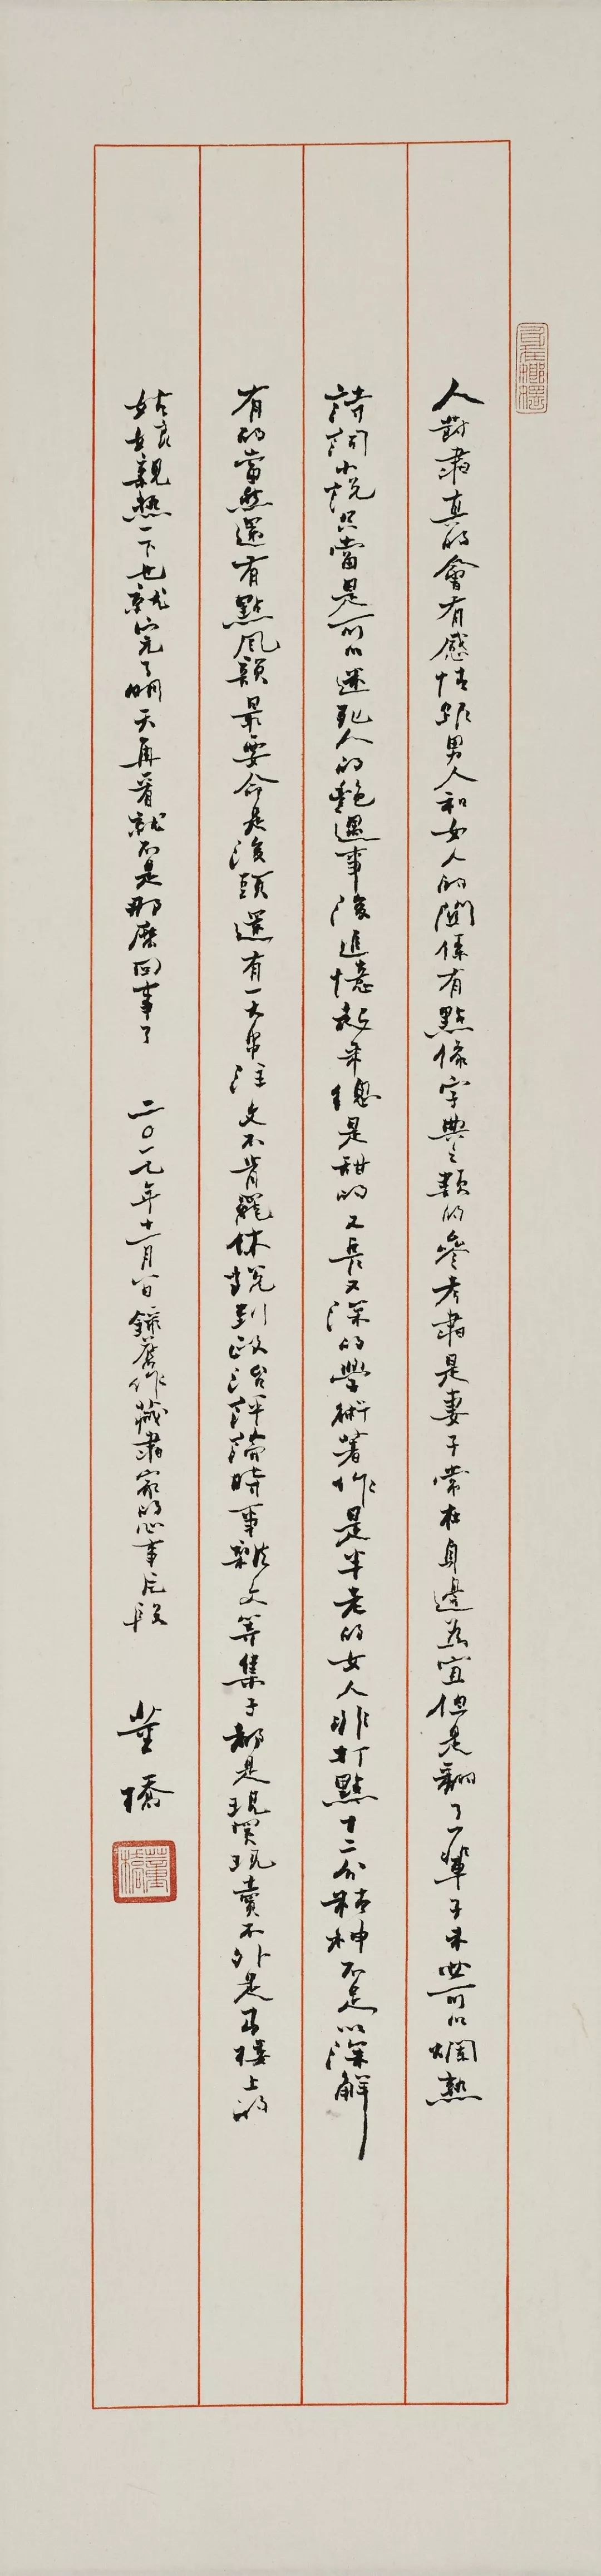 人對書真的會有感情跟男人和女人的關係有點像字典之類的參考書是妻子常在身邊為宜但是翻了一輩子未必可以爛熟
詩詞小說只當是可以迷死人的艷遇事後追憶起來總是甜的又長又深的學術著作是半老的女人非打點十二分精神不足以深解
有的當然還有點風韻最要命是後頭還有一大串注文不肯罷休說到政治評論時事雜文等集子都是現買現賣不外是青樓上的
姑娘親熱一下也就完了明天再看就不是那麼回事了 二〇一九年十一月 錄舊作藏書家的心事片段 董橋
董橋